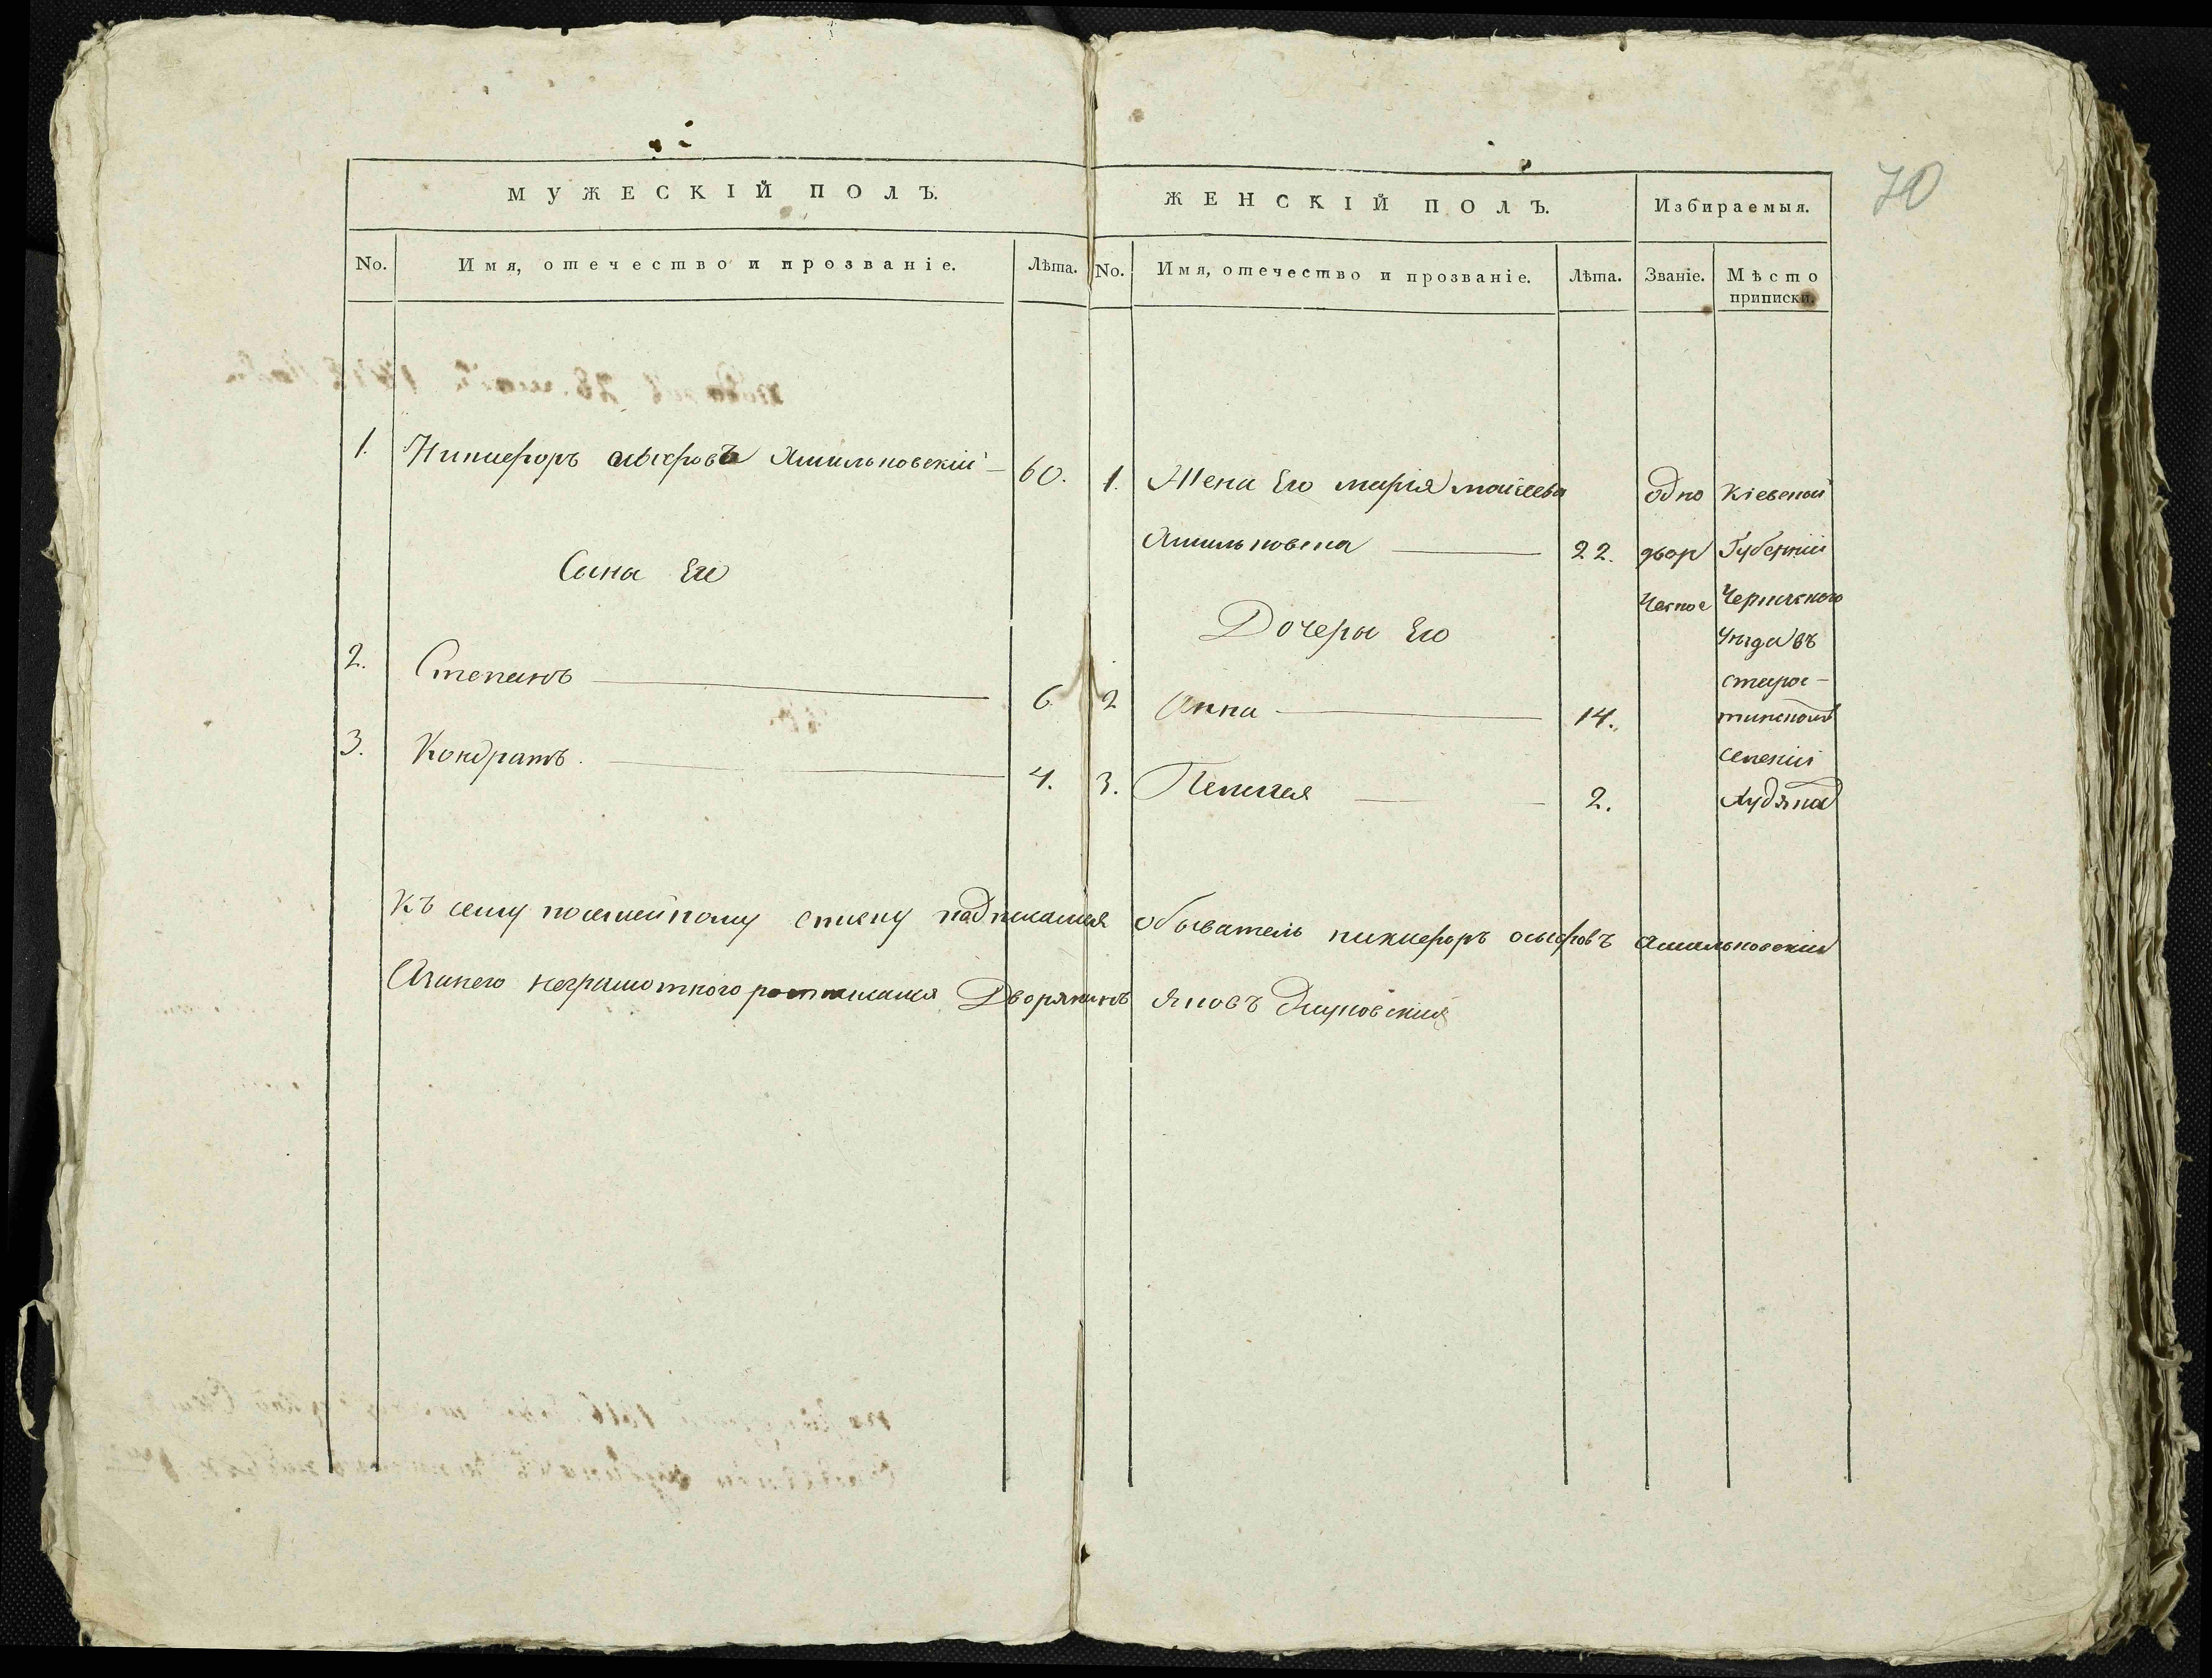 70
МУЖЕСКІЙ ПОЛЪ.
No. Имя, отечество и прозваніе. Лѣта.
1. Никифоръ Ямильковскій — 60.
Сына Его
2. Степанъ — 6
3. Кондратъ — 4.
ЖЕНСКІЙ ПОЛЪ. Избираемыя.
No. Имя, отечество и прозваніе. Лѣта. Званіе. Мѣсто
приписки.
1. Жена Его марія моисеева
Ямильковска — 22.
Дочеры Его
2 Анна — 14.
3. Пелагея — 2.
одно
двор
ческое
Кіевской
Губерніи
Черкаского
уѣзда въ
старос-
тинскомъ
селеніи
Худяка
Къ сему посемейному списку подписался обыватель никифоръ Ямильковскій
Азанего неграмотного росписался Дворянинъ Яковъ